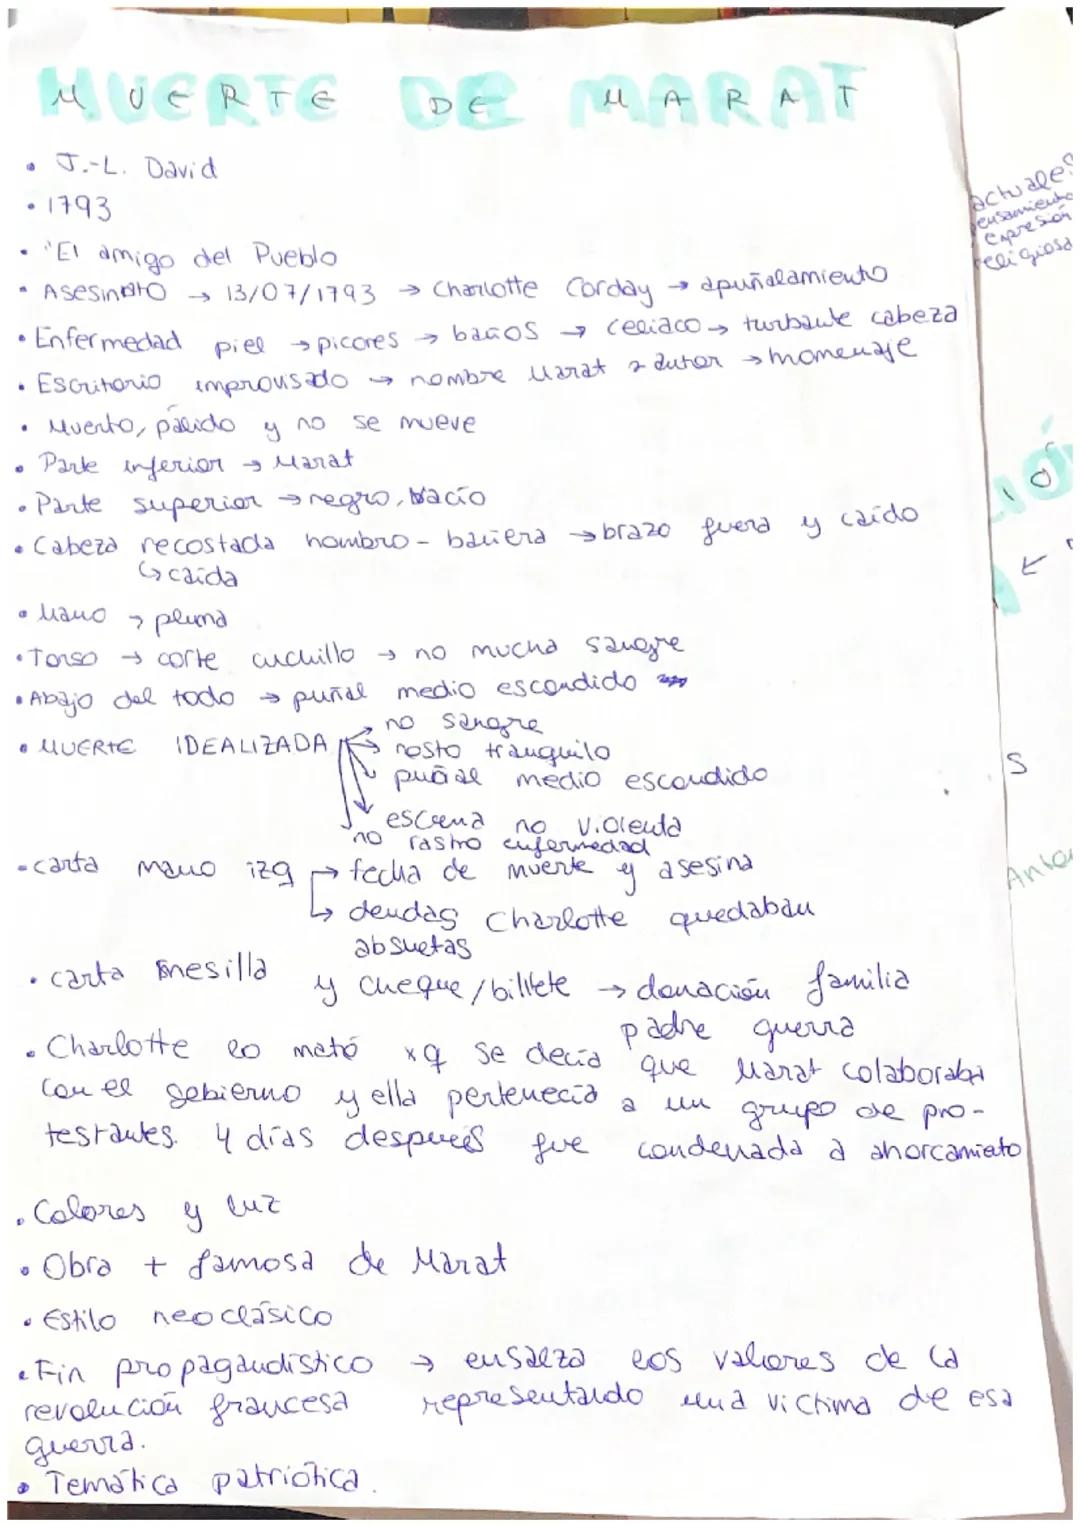 MUERTE DE MARAT
• J.-L. David
• 1793
• "El amigo del Pueblo
• Asesinato → 13/07/1793 → Charlotte Corday → apuñalamiento
• Enfermedad piel → picores → baños → celiaco → turbante cabeza
• Escritorio improvisado → nombre Marat a autor → homenaje
• Muerto, pálido y no se mueve
• Parte inferior → Marat
• Parte superior → negro, vacío
• Cabeza recostada hombro - bañera → brazo fuera y caído
↳ caída
• Mano → pluma
• Torso → corte cuchillo → no mucha sangre
• Abajo del todo → puñal medio escondido
• MUERTE IDEALIZADA → no sangre
→ rosto tranquilo
→ puñal medio escondido
→ escena no violenta
no rastro enfermedad
- carta mano izq → fecha de muerte y asesina
↳ deudas Charlotte quedaban
absueltas
• carta mesilla y cheque/billete → donación familia
padre guerra
• Charlotte lo mató xq se decía que Marat colaboraba
con el gobierno y ella pertenecía a un grupo de pro-
testantes. 4 días después fue condenada a ahorcamieto
• Colores y luz
• Obra + famosa de Marat
• Estilo neoclásico
• Fin propagandístico → ensalza los valores de la
revolución francesa representando una victima de esa
guerra.
• Temática patriótica.
actuales
expresión
religiosa